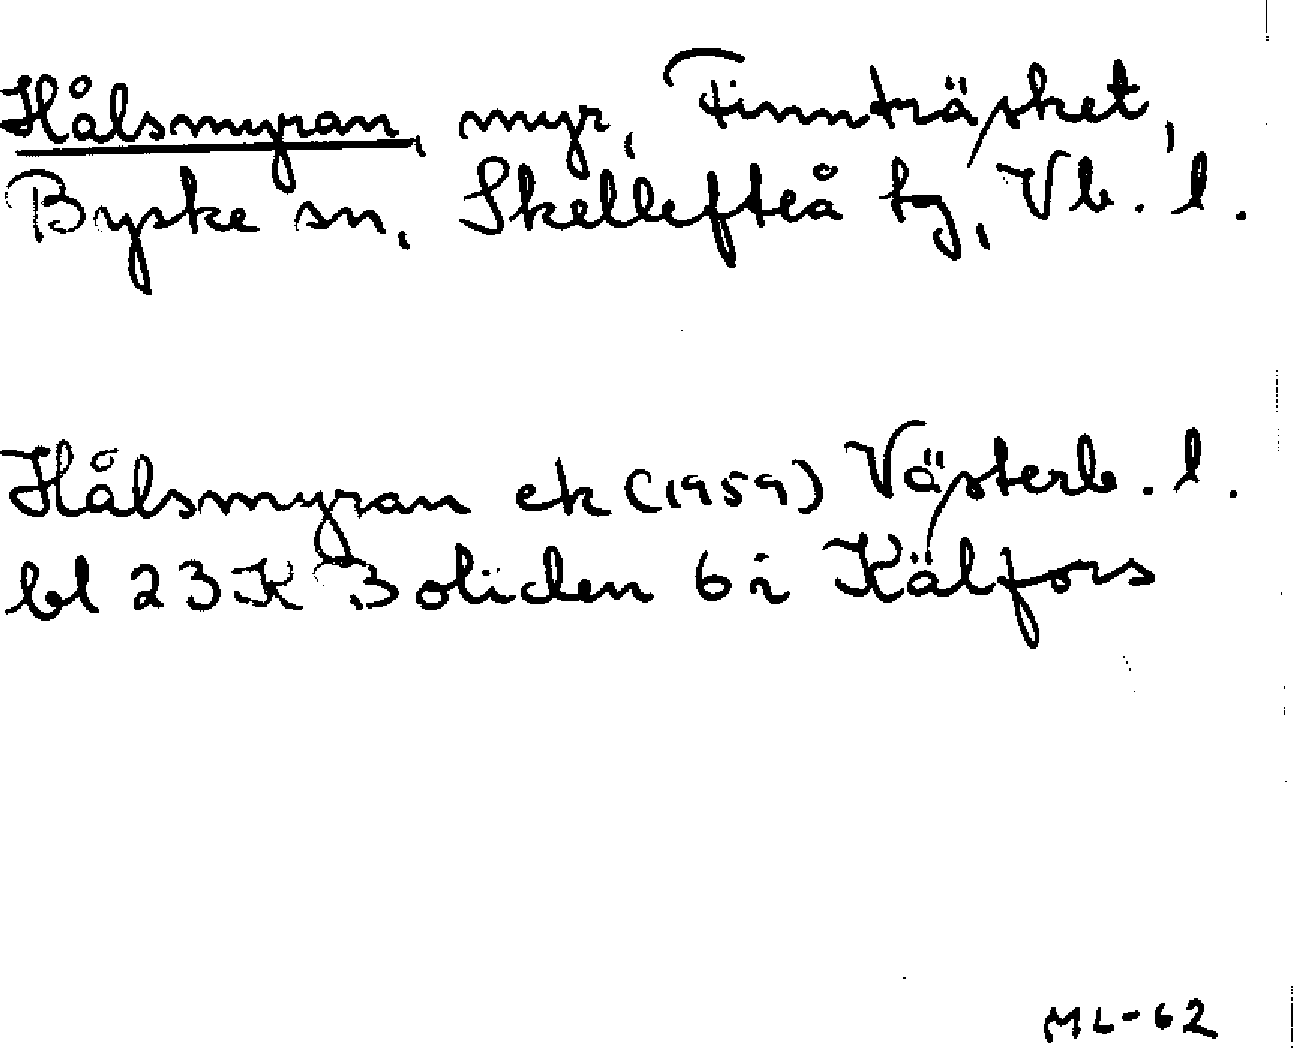 Hålsmyran, myr, Finnträsket,
Byske sn, Skellefteå tg, Vb. l.
Hålsmyran ek (1959) Västerb. l.
bl 23K Boliden 6i Kälfors
ML-62